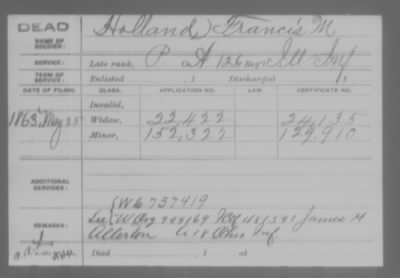 DEAD Holland, Francis M
NAME OF SOLDIER:
SERVICE: Late rank, P Co. A 126 Reg't Ill Inf
TERM OF SERVICE: Enlisted , 1 Discharged , 1
DATE OF FILING. CLASS. APPLICATION NO. LAW. CERTIFICATE NO.
Invalid,
1863, May 25 Widow, 22,422 24,135
Minor, 152,322 129.910
ADDITIONAL SERVICES:
(W6 737419
REMARKS: James H
Inf
Died , 1 , at